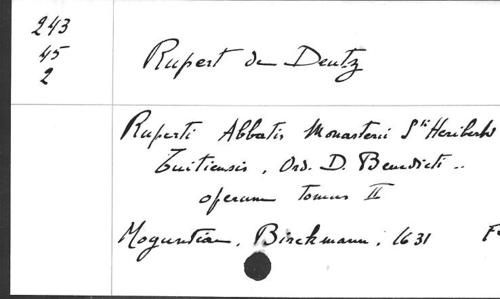 243
45
2
Rupert de Deutz
Ruperti Abbatis Monasterii Sti Heriberti
Tuitiensis, Ord. D. Benedicti ..
operum tomus II
Moguntiae, Birckmann, 1631 F